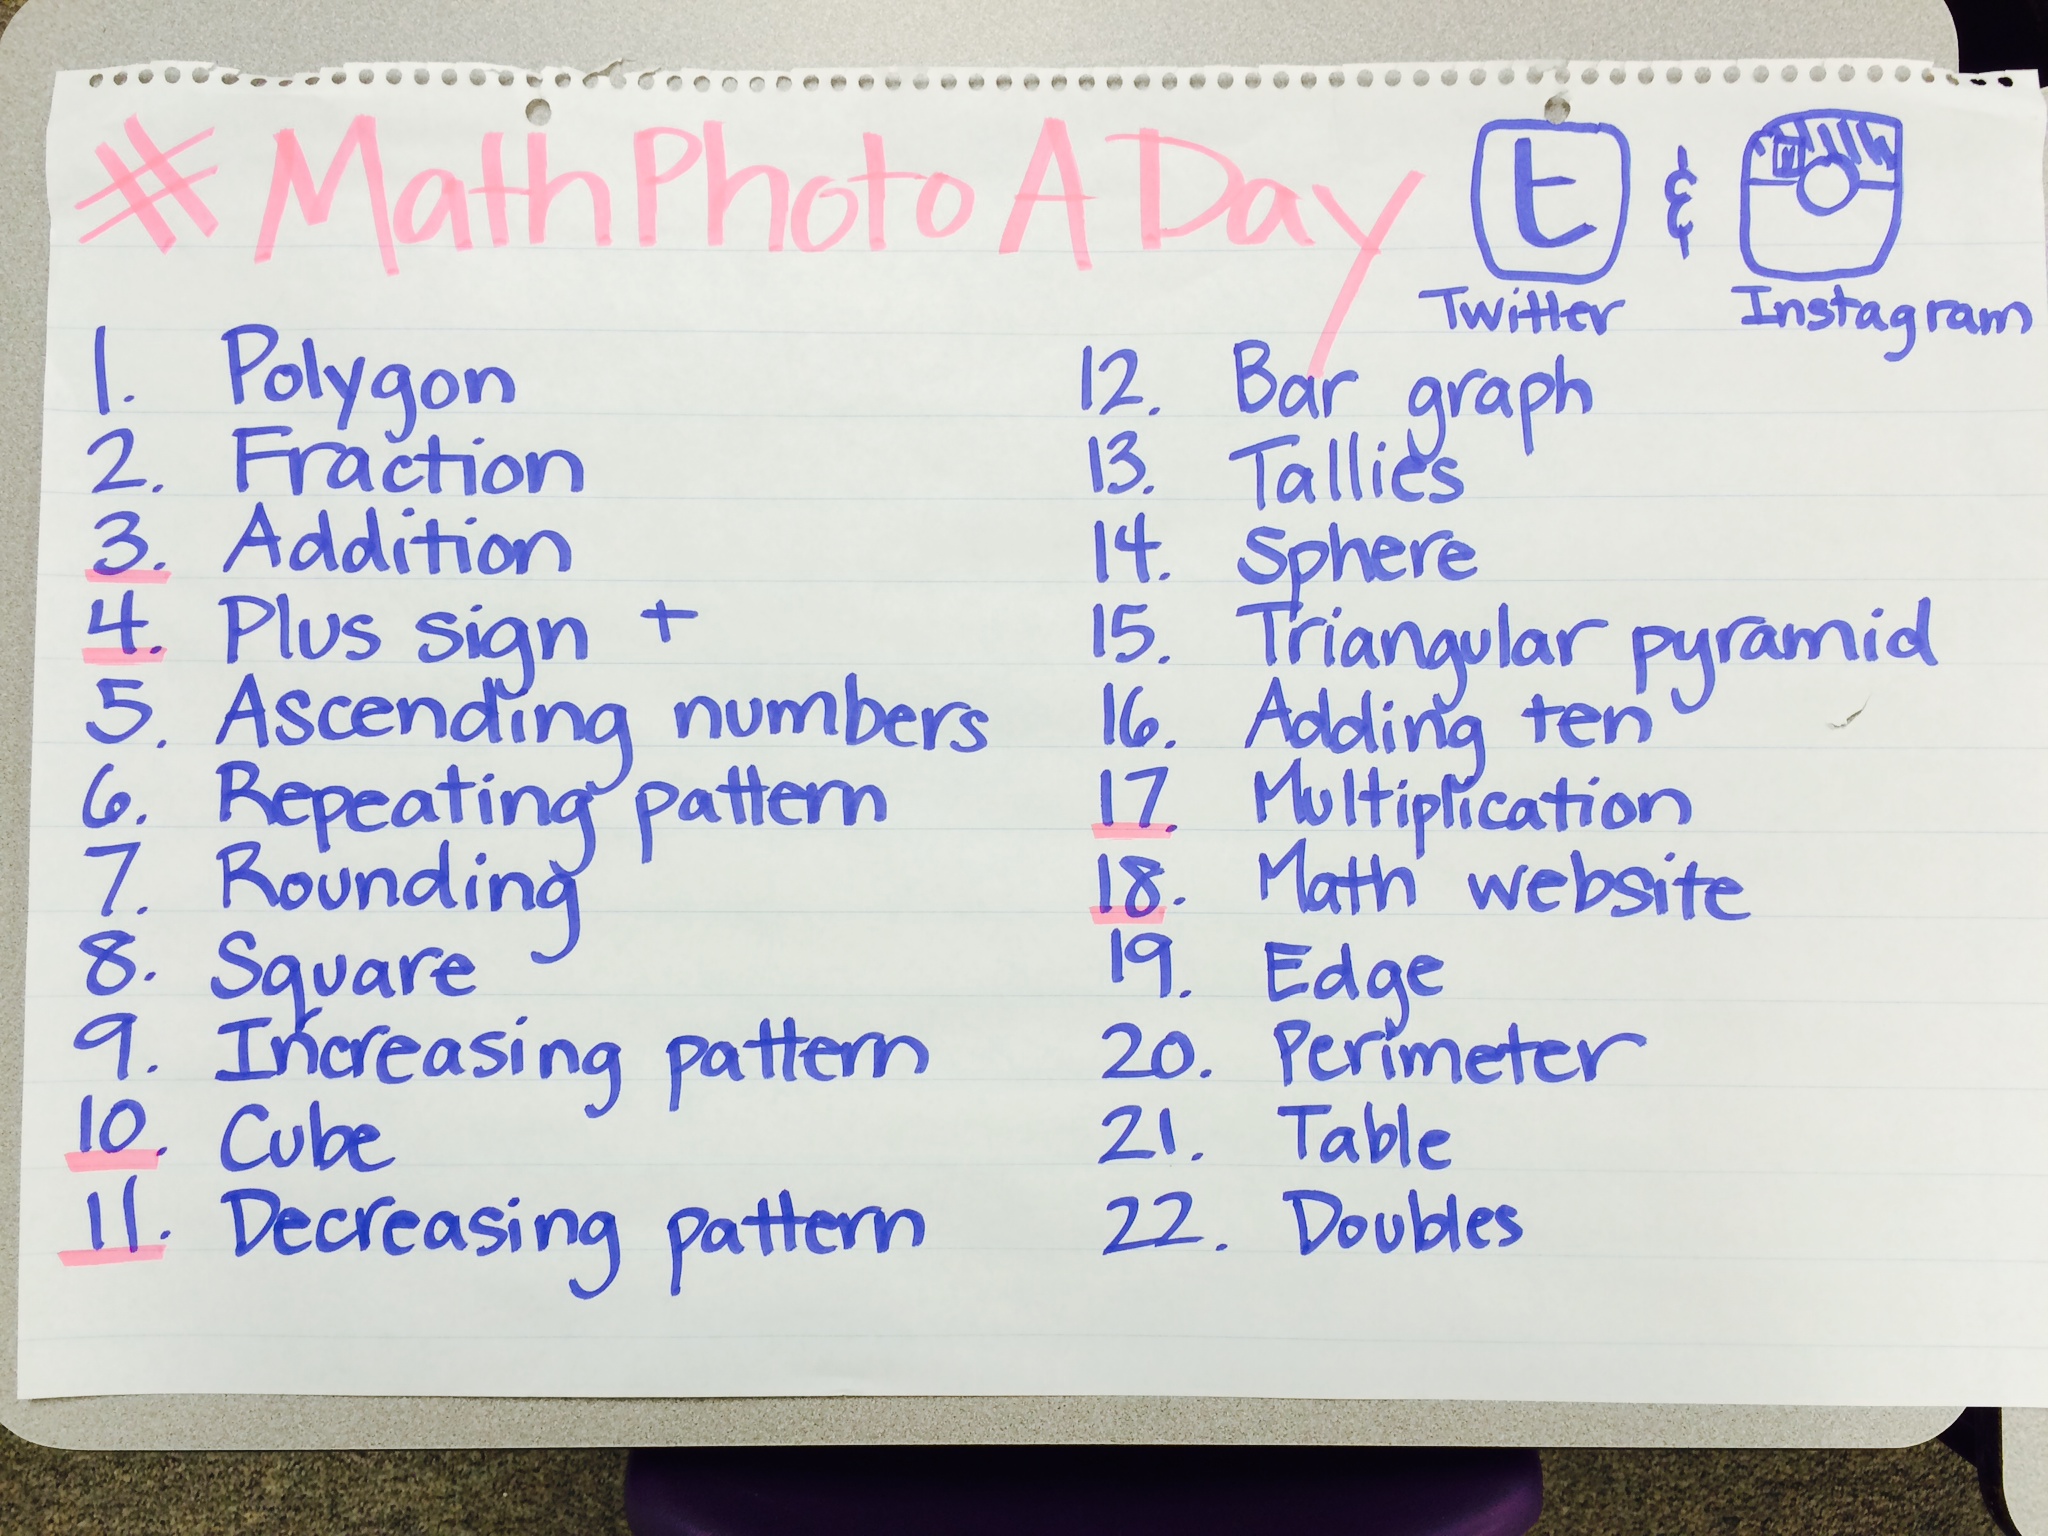 #MathPhotoADay
t & M
Twitter Instagram
1. Polygon
2. Fraction
3. Addition
4. Plus sign +
5. Ascending numbers
6. Repeating pattern
7. Rounding
8. Square
9. Increasing pattern
10. Cube
11. Decreasing pattern
12. Bar graph
13. Tallies
14. Sphere
15. Triangular pyramid
16. Adding ten
17. Multiplication
18. Math website
19. Edge
20. Perimeter
21. Table
22. Doubles